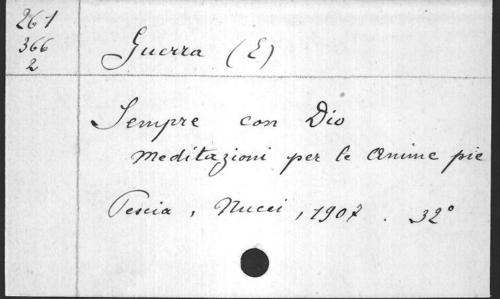 261
366
2
Guerra (E)
Sempre con Dio
meditazioni per le anime pie
Pescia, Nucci, 1907. 32°